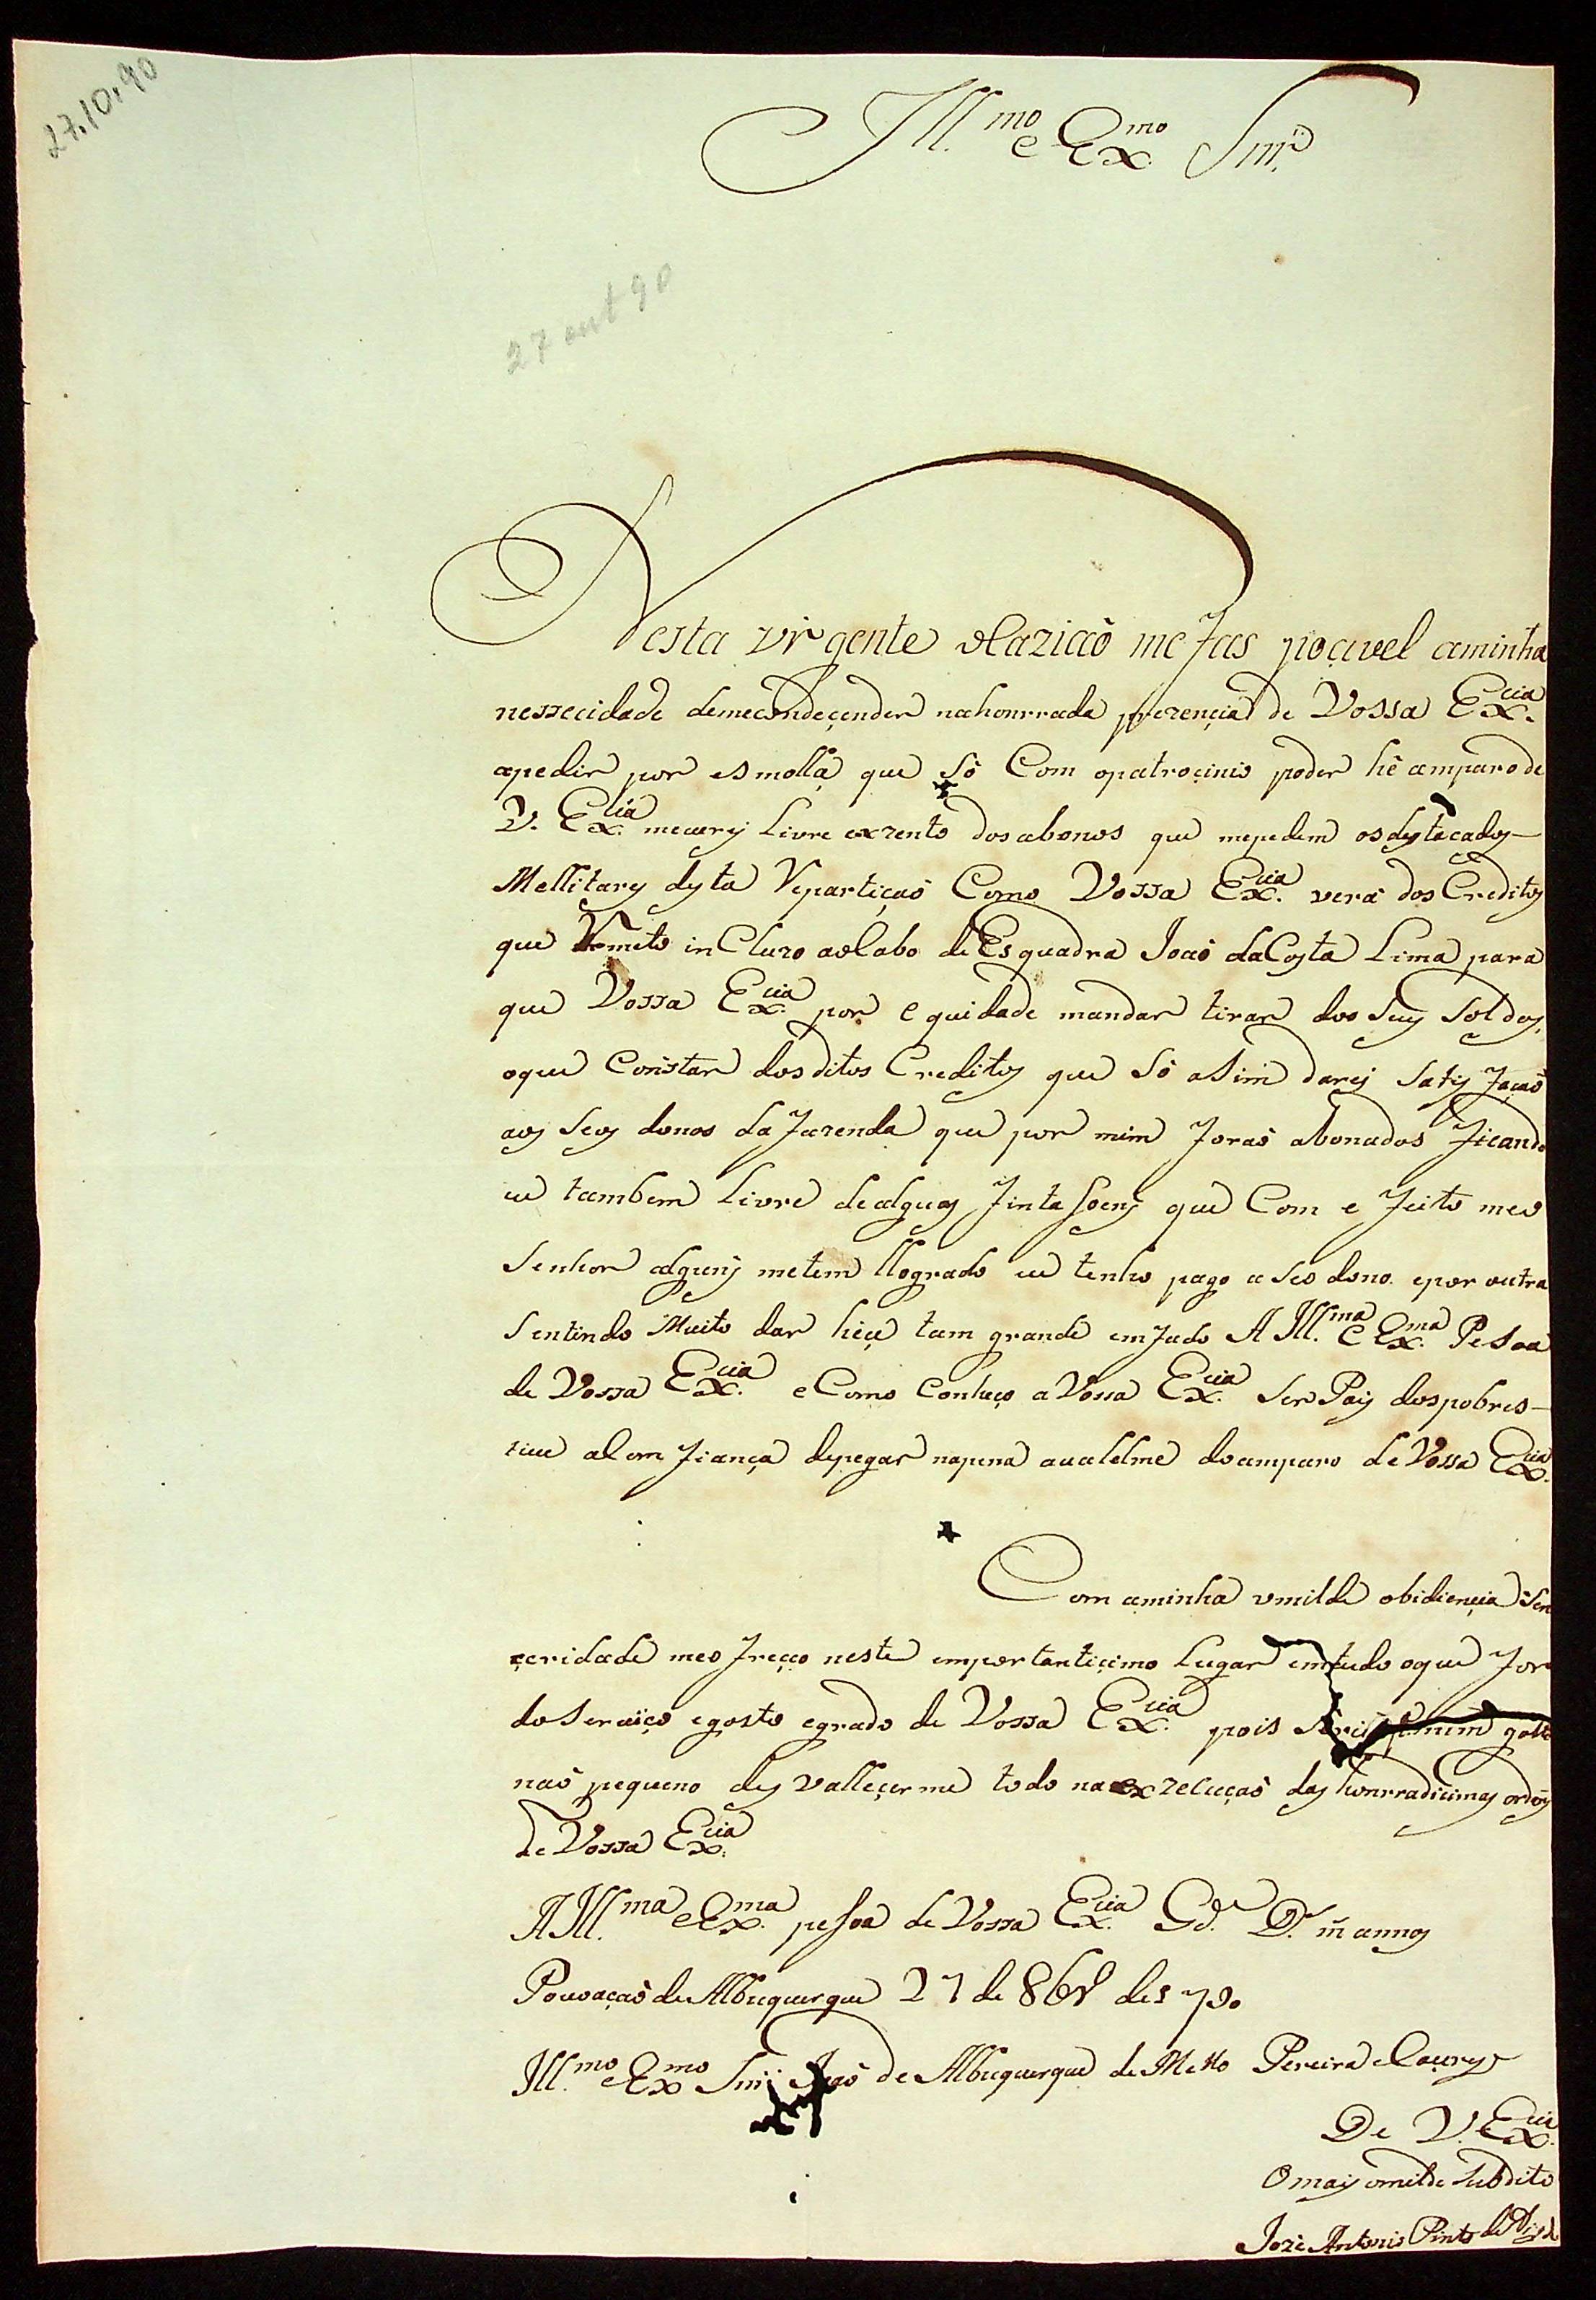 27.10.90
Ill.mo e Ex.mo Snr.
27 out 90
Nesta vrgente ocaziaõ me fas poçivel aminha
nessecidade demecondeçender nahonrrada prezençia de Vossa Ex.cia
apedir por esmolla que só Com opatroçinio poder hé amparo de
V. Ex.cia meverej Livre exzento dosabonos que mepedem osdestacados
Mellitares desta Repartiçaõ Como Vossa Ex.cia verá dos Creditos
que Remeto inCluzo aoCabo de Esquadra Joaõ daCosta Lima para
que Vossa Ex.cia por equidade mandar tirar dos Seus Soldos,
oque Constar dosditos Creditos que Só asim darej Satisfaçaõ
aos Seos donos da fazenda que por mim foraõ abonados ficando
eu tambem Livre dealguas finta soens que Com efeito meo
Senhor alguns metem llogrado eu tenho pago a Seo dono. epor outra
Sentindo Muito dar heça tam grande emfado A Ill.ma e Ex.ma Pesoa
de Vossa Ex.cia e Como Conheço a Vossa Ex.cia Ser Pay dospobres
tive aComfiança depegar napena avallelme doamparo de Vossa Ex.cia
Com aminha vmilde obidiençia Sen
çeridade meofreço neste emportantiçimo Lugar emtudo oque for
doServiço egosto egrado de Vossa Ex.cia pois gosto
naõ pequeno des valleçerme todo na exzecuçaõ das honrradiçimas ordẽs
de Vossa Ex.cia
A Ill.ma e Ex.ma pesoa de Vossa Ex.cia Gd.e D.s m annos
Povoaçaõ de Albuquerque 27 de 8br.o de 1790
Ill.mo e Ex.mo Snr. Joaõ de Albuquerque de Mello Pereira eCaçeres
De V. Ex.cia
Omais omilde Subdito
Jozé Antonio Pinto de